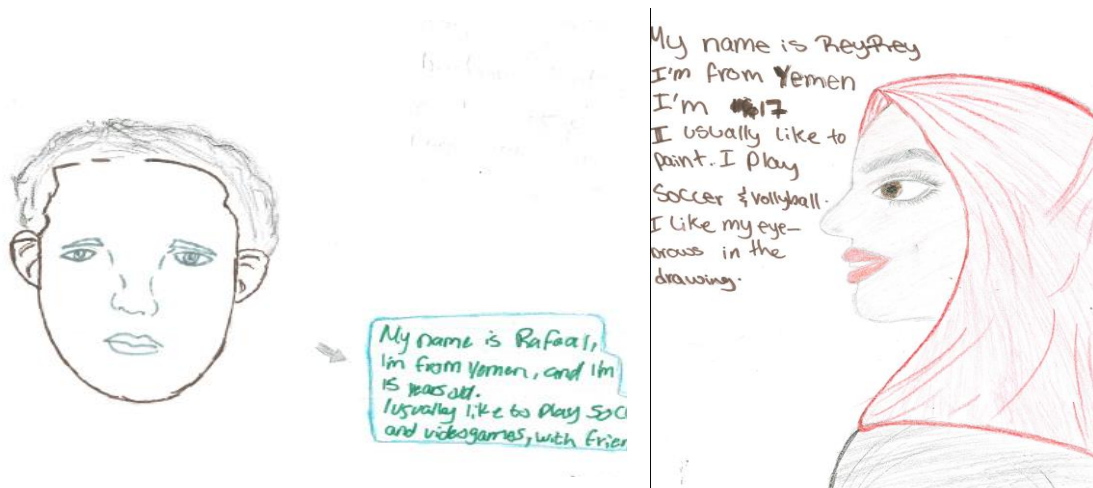 My name is Rafaal,
I'm from Yemen, and I'm
15 years old.
I usually like to play soc
and videogames, with frien
My name is ReyRey
I'm from Yemen
I'm 17
I usually like to
paint. I Play
Soccer & vollyball.
I like my eye-
brows in the
drawing.